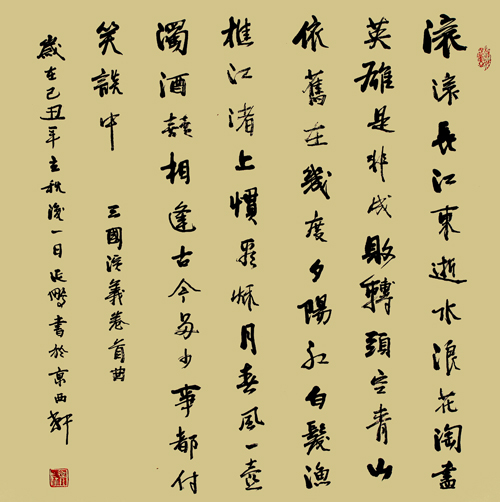 滚滚長江東逝水浪花淘盡
英雄是非成敗轉頭空青山
依舊在幾度夕陽紅白髮漁
樵江渚上慣看秋月春風一壺
濁酒囍相逢古今多少事都付
笑談中 三國演義卷首曲
歲在己丑年立秋後一日 鵬書於京西軒